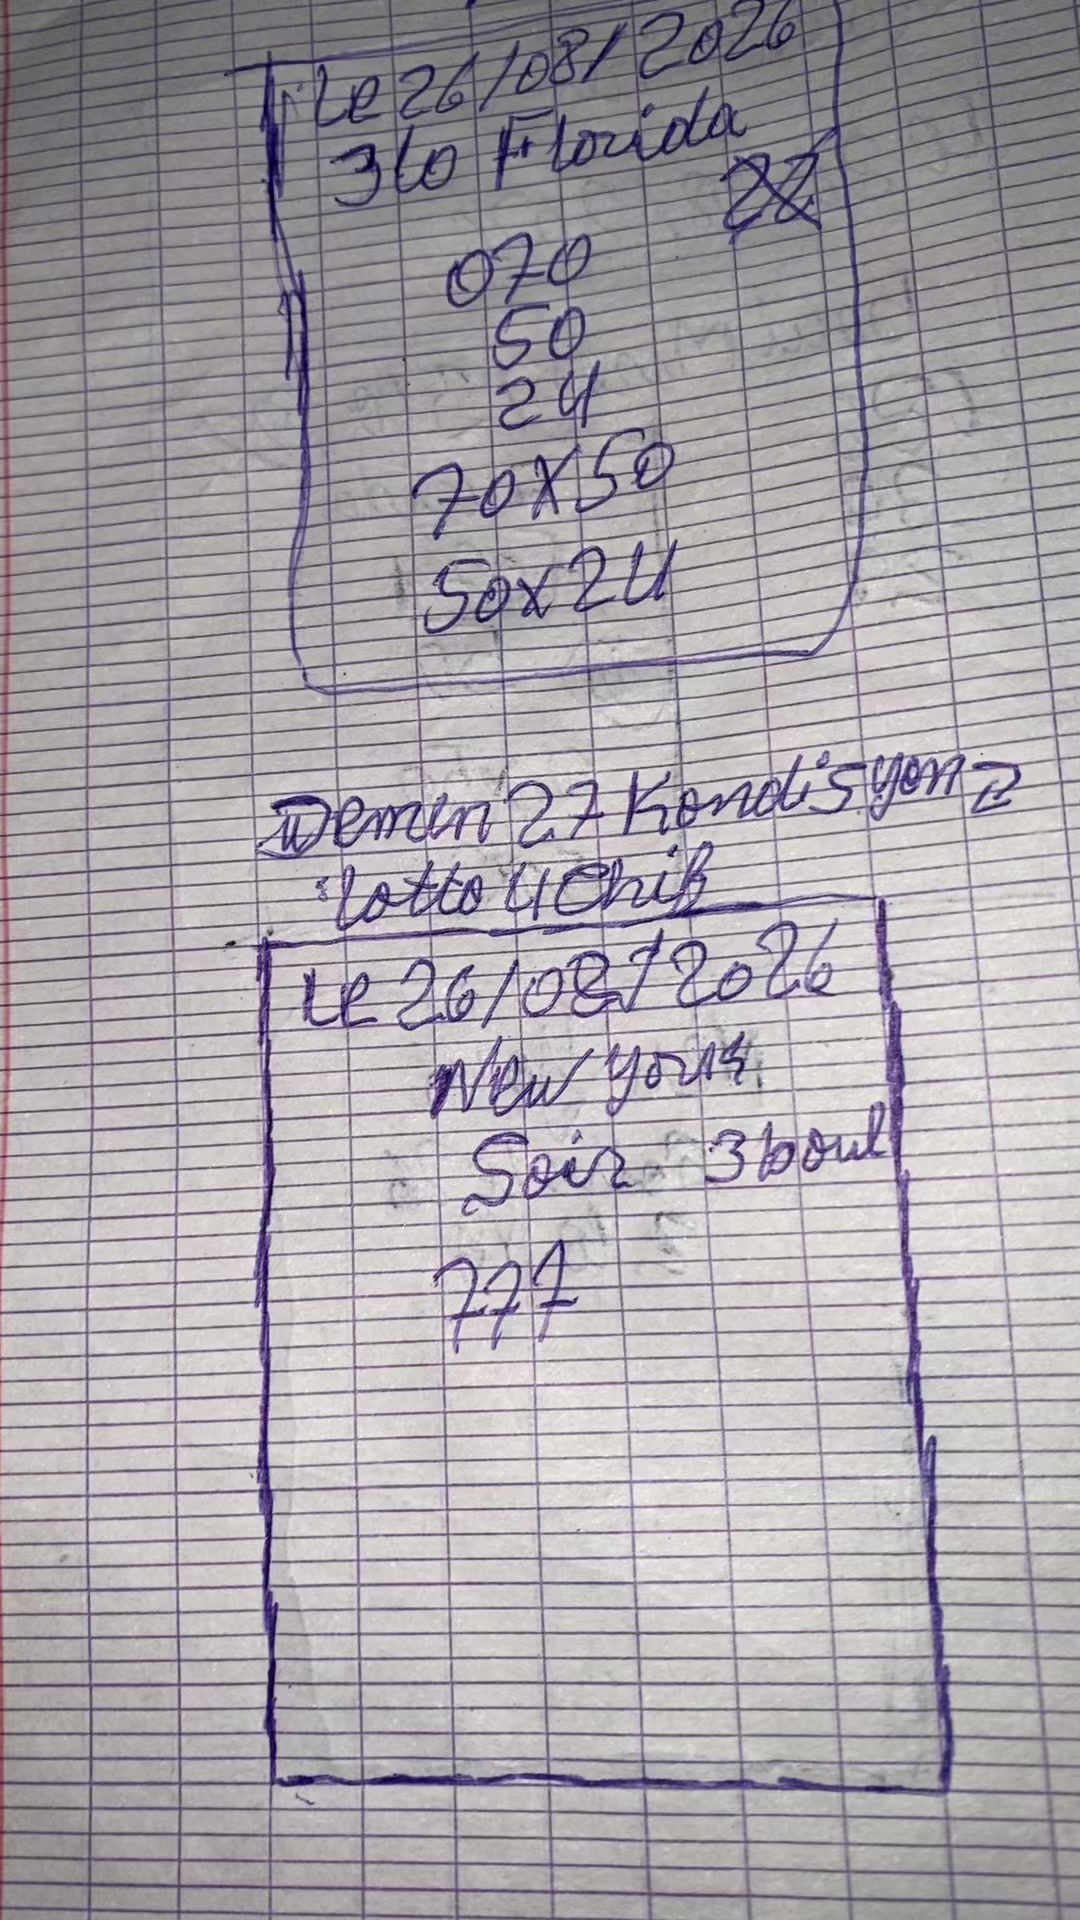 Le 26/08/2026
3lo Florida
22
070
50
24
70X50
50x24
Demen 27 Kondisyon 2
lotto 4 Chif
Le 26/08/2026
New york
Soir 3 boul
777